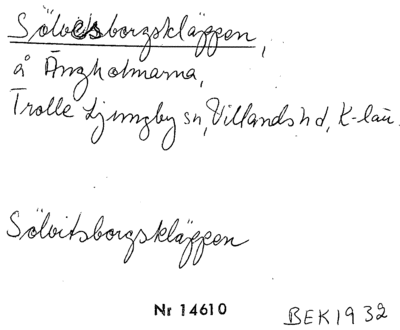 Sölvesborgskläppen,
å Ängholmarna,
Trolle Ljungby sn, Villands hd, K-län.
Sölvitsborgskläppen
Nr 14610
BEK1932